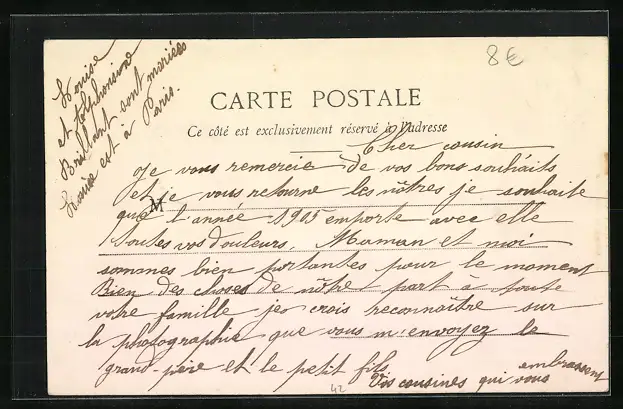 8€
Louise
et Alphonsine
Brillant sont mariées
Louise est à Paris.
CARTE POSTALE
Ce côté est exclusivement réservé à l'adresse
Cher cousin
Je vous remercie de vos bons souhaits
et je vous retourne les nôtres je souhaite
que l'année 1905 emporte avec elle
toutes vos douleurs. Maman et moi
sommes bien portantes pour le moment
Bien des choses de nôtre part à toute
votre famille je crois reconnaître sur
la photographie que vous m'envoyez le
grand-père et le petit fils
Vos cousines qui vous embrassent
42